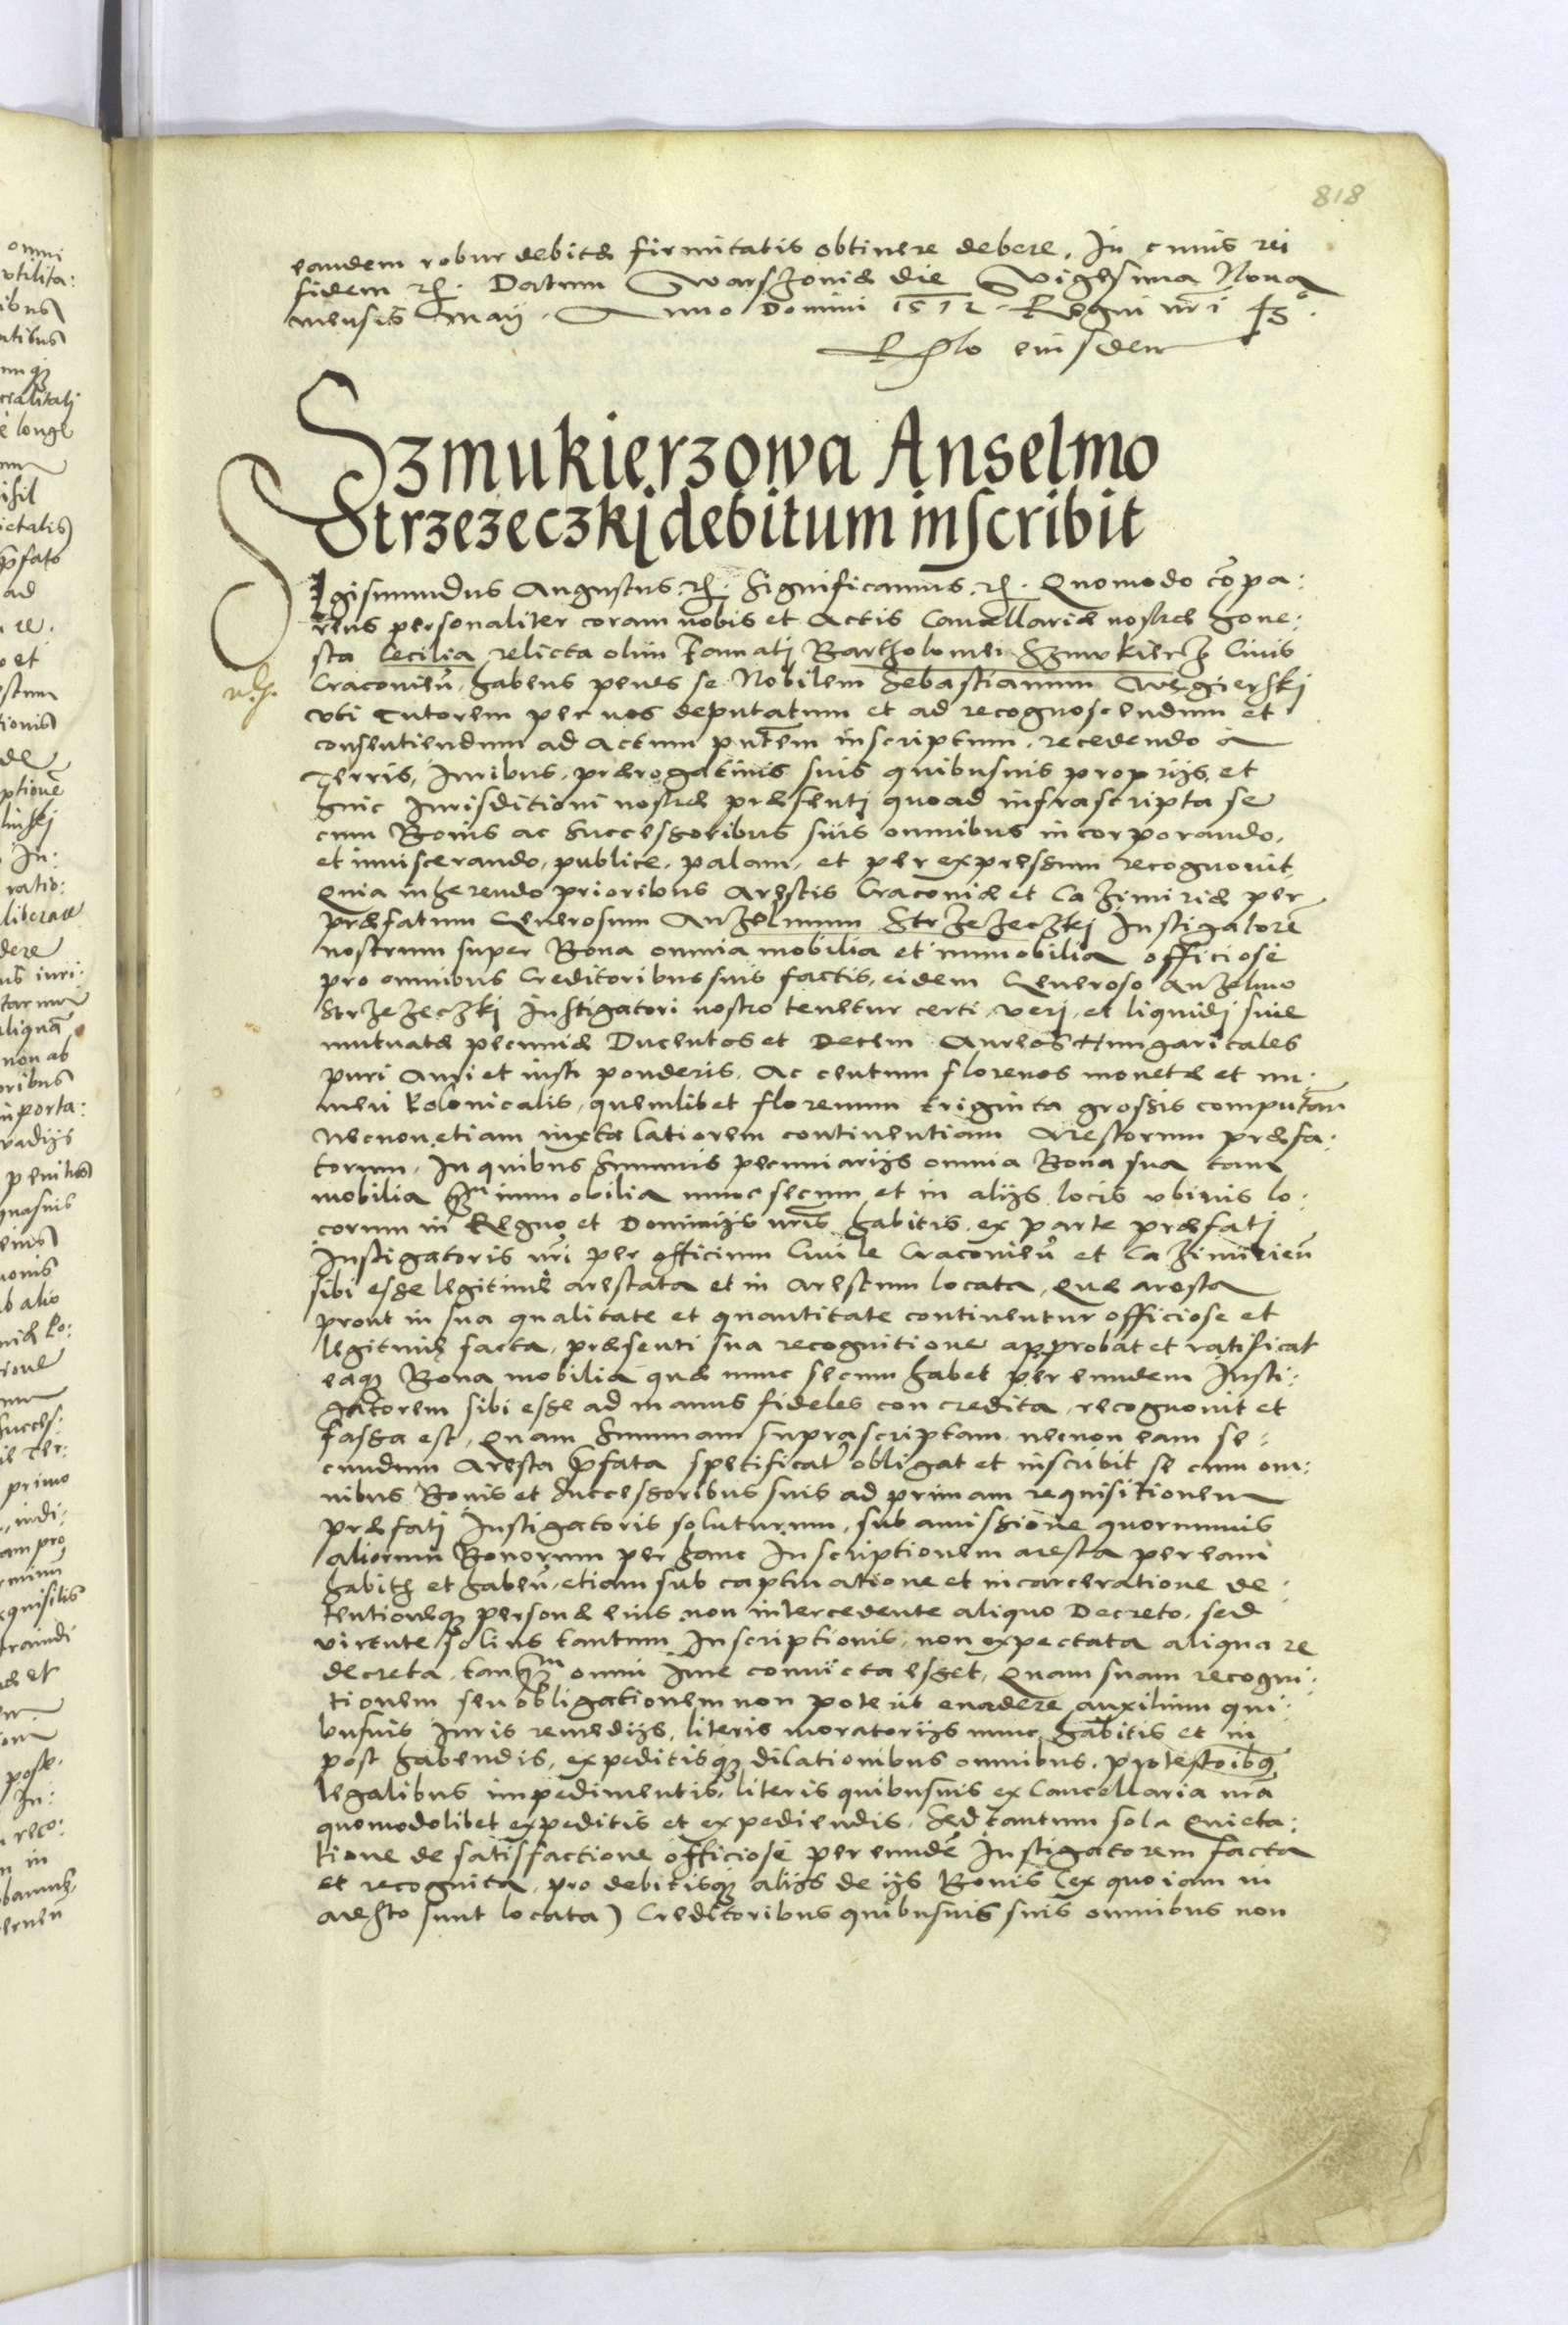 818
eandem robur debitæ firmitatis obtinere debere. In cuius rei
fidem rc. Datum Warszoviæ die Vigesima Nona
mensis Maij. Anno Domini 1572. Regni nri 43.
Rlo eiusdem
Szmukierzowa Anselmo
Strzezeczkj debitum inscribit
Sigismundus Augustus. rc. Significamus. rc. Quomodo compa:
rens personaliter coram nobis et Actis Cancellariæ nostræ hone:
sta Cecilia relicta olim Famatj Bartholomei Szmukierz Civis
Cracovien. habens penes se Nobilem Sebastianum Wegierskj
vti Tutorem per nos deputatum et ad recognoscendum et
consentiendum ad Actum pntem inscriptum. recedendo a
Terris, Iuribus, prærogativis suis quibusvis proprijs et
huic Iurisditioni nostræ præsentj quoad infrascripta se
cum Bonis ac Successoribus suis omnibus incorporando.
et inviscerando, publice, palam, et per expressum recognovit
Quia inhærendo prioribus Arestis Cracoviæ et Cazimiriæ per
præfatum Generosum Anzelmum Strzezeczkj Instigatore
nostrum super Bona omnia mobilia et immobilia officiose
pro omnibus Creditoribus suis factis, eidem Generoso Anzelmo
Strzezeczkj Instigatori nostro tenetur certi verj et liquidj sive
mutuatæ pecuniæ Ducentos et Decem Aureos Hungaricales
puri Auri et iusti ponderis. Ac centum florenos monetæ et nu:
meri Polonicalis, quemlibet florenum triginta grossis computan
Necnon etiam iuxta latiorem continentiam Arestorum præfa:
torum. In quibus Summis pecuniarijs omnia Bona sua tam
mobilia qm immobilia nunc secum et in alijs locis vbivis lo:
corum in Regno et Dominijs nris habitis ex parte præfatj
Instigatoris nri per officium Civile Cracovien et Cazimirien
sibi esse legitime arestata et in arestum locata, Quæ aresta
prout in sua qualitate et quantitate continentur officiose et
legitime facta, præsenti sua recognitione approbat et ratificat
eaq Bona mobilia quæ nunc secum habet per eundem Insti:
gatorem sibi esse ad manus fideles concredita, recognovit et
fassa est, Quam Summam suprascriptam necnon eam se:
cundum Aresta pfata spetificat obligat et inscribit se cum om:
nibus Bonis et Successoribus suis ad primam requisitionem
præfatj Instigatoris soluturum, sub amissione quorumvis
aliorum Bonorum per hanc Inscriptionem aresta per eam
habite et haben, etiam sub captivatione et incarceratione de:
tentioneq personæ eius non intercedente aliquo Decreto, sed
virtute solius tantum Inscriptionis, non expectata aliqua re
decreta, tanqm omni iure convicta esset, Quam suam recogni:
tionem seu obligationem non poterit evadere auxilium qui:
busvis Iuris remedijs, literis moratorijs nunc habitis et in
post habendis, expeditisq dilationibus omnibus, protestoibq
legalibus impedimentis, literis quibusvis ex Cancellaria nra
quomodolibet expeditis et expediendis, Sed tantum sola Quieta:
tione de satisfactione officiose per eunde Instigatorem facta
et recognita, pro debitisq alijs de ijs Bonis (ex quo iam in
aresto sunt locata) Creditoribus quibusvis suis omnibus non